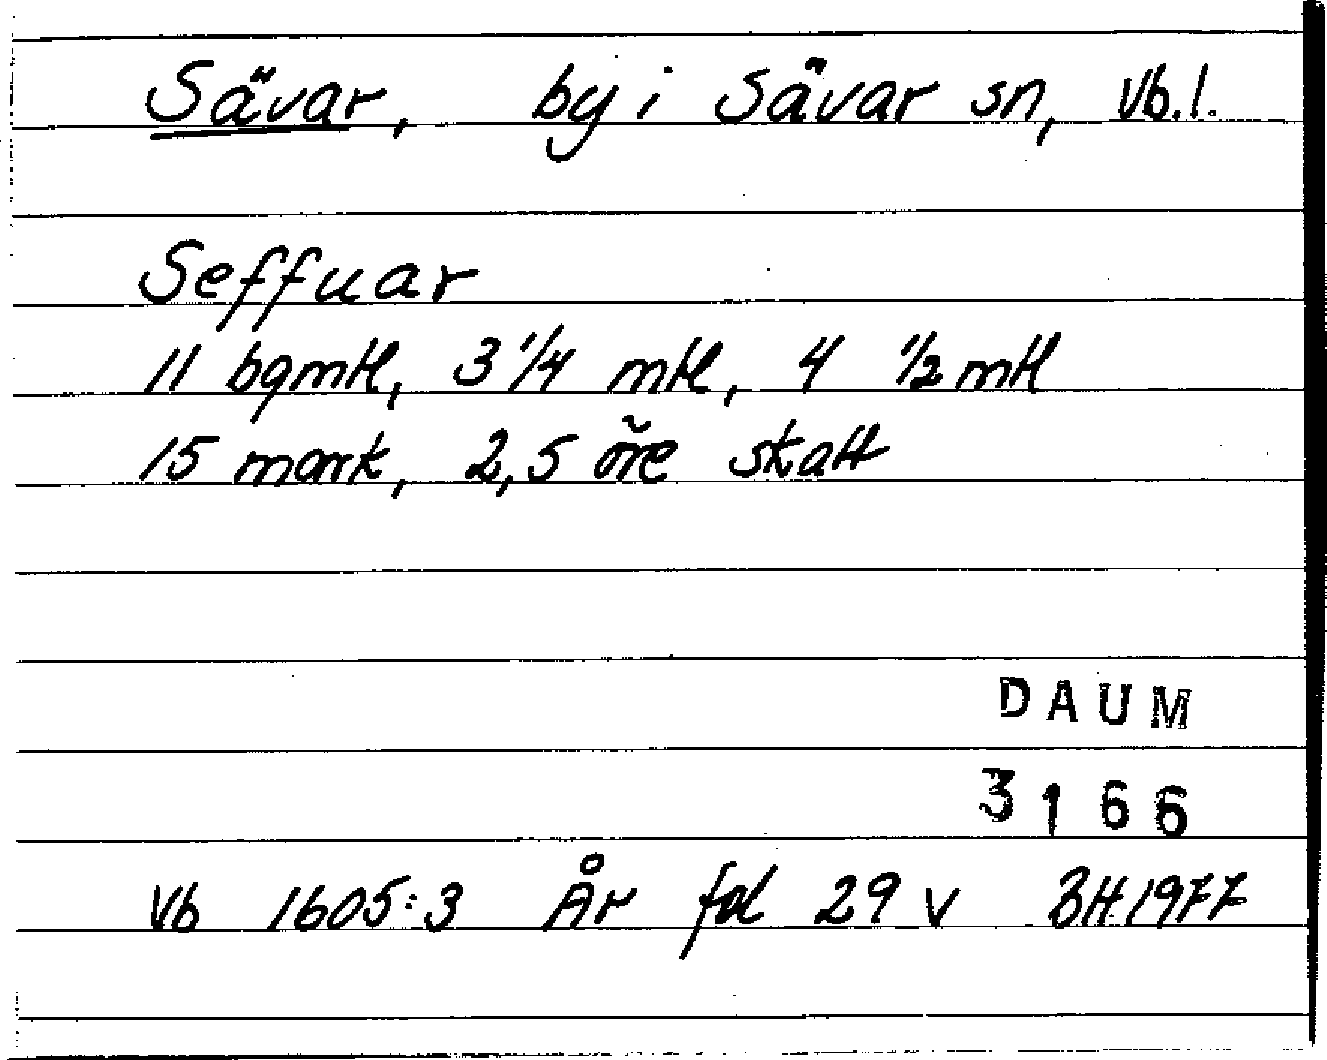 Sävar, by i Sävar sn, Vb.l.
Seffuar
11 bgmtl, 3 1/4 mtl, 4 1/2 mtl
15 mark, 2,5 öre skatt
DAUM
3166
Vb 1605:3 År fol 29 v BH.1977